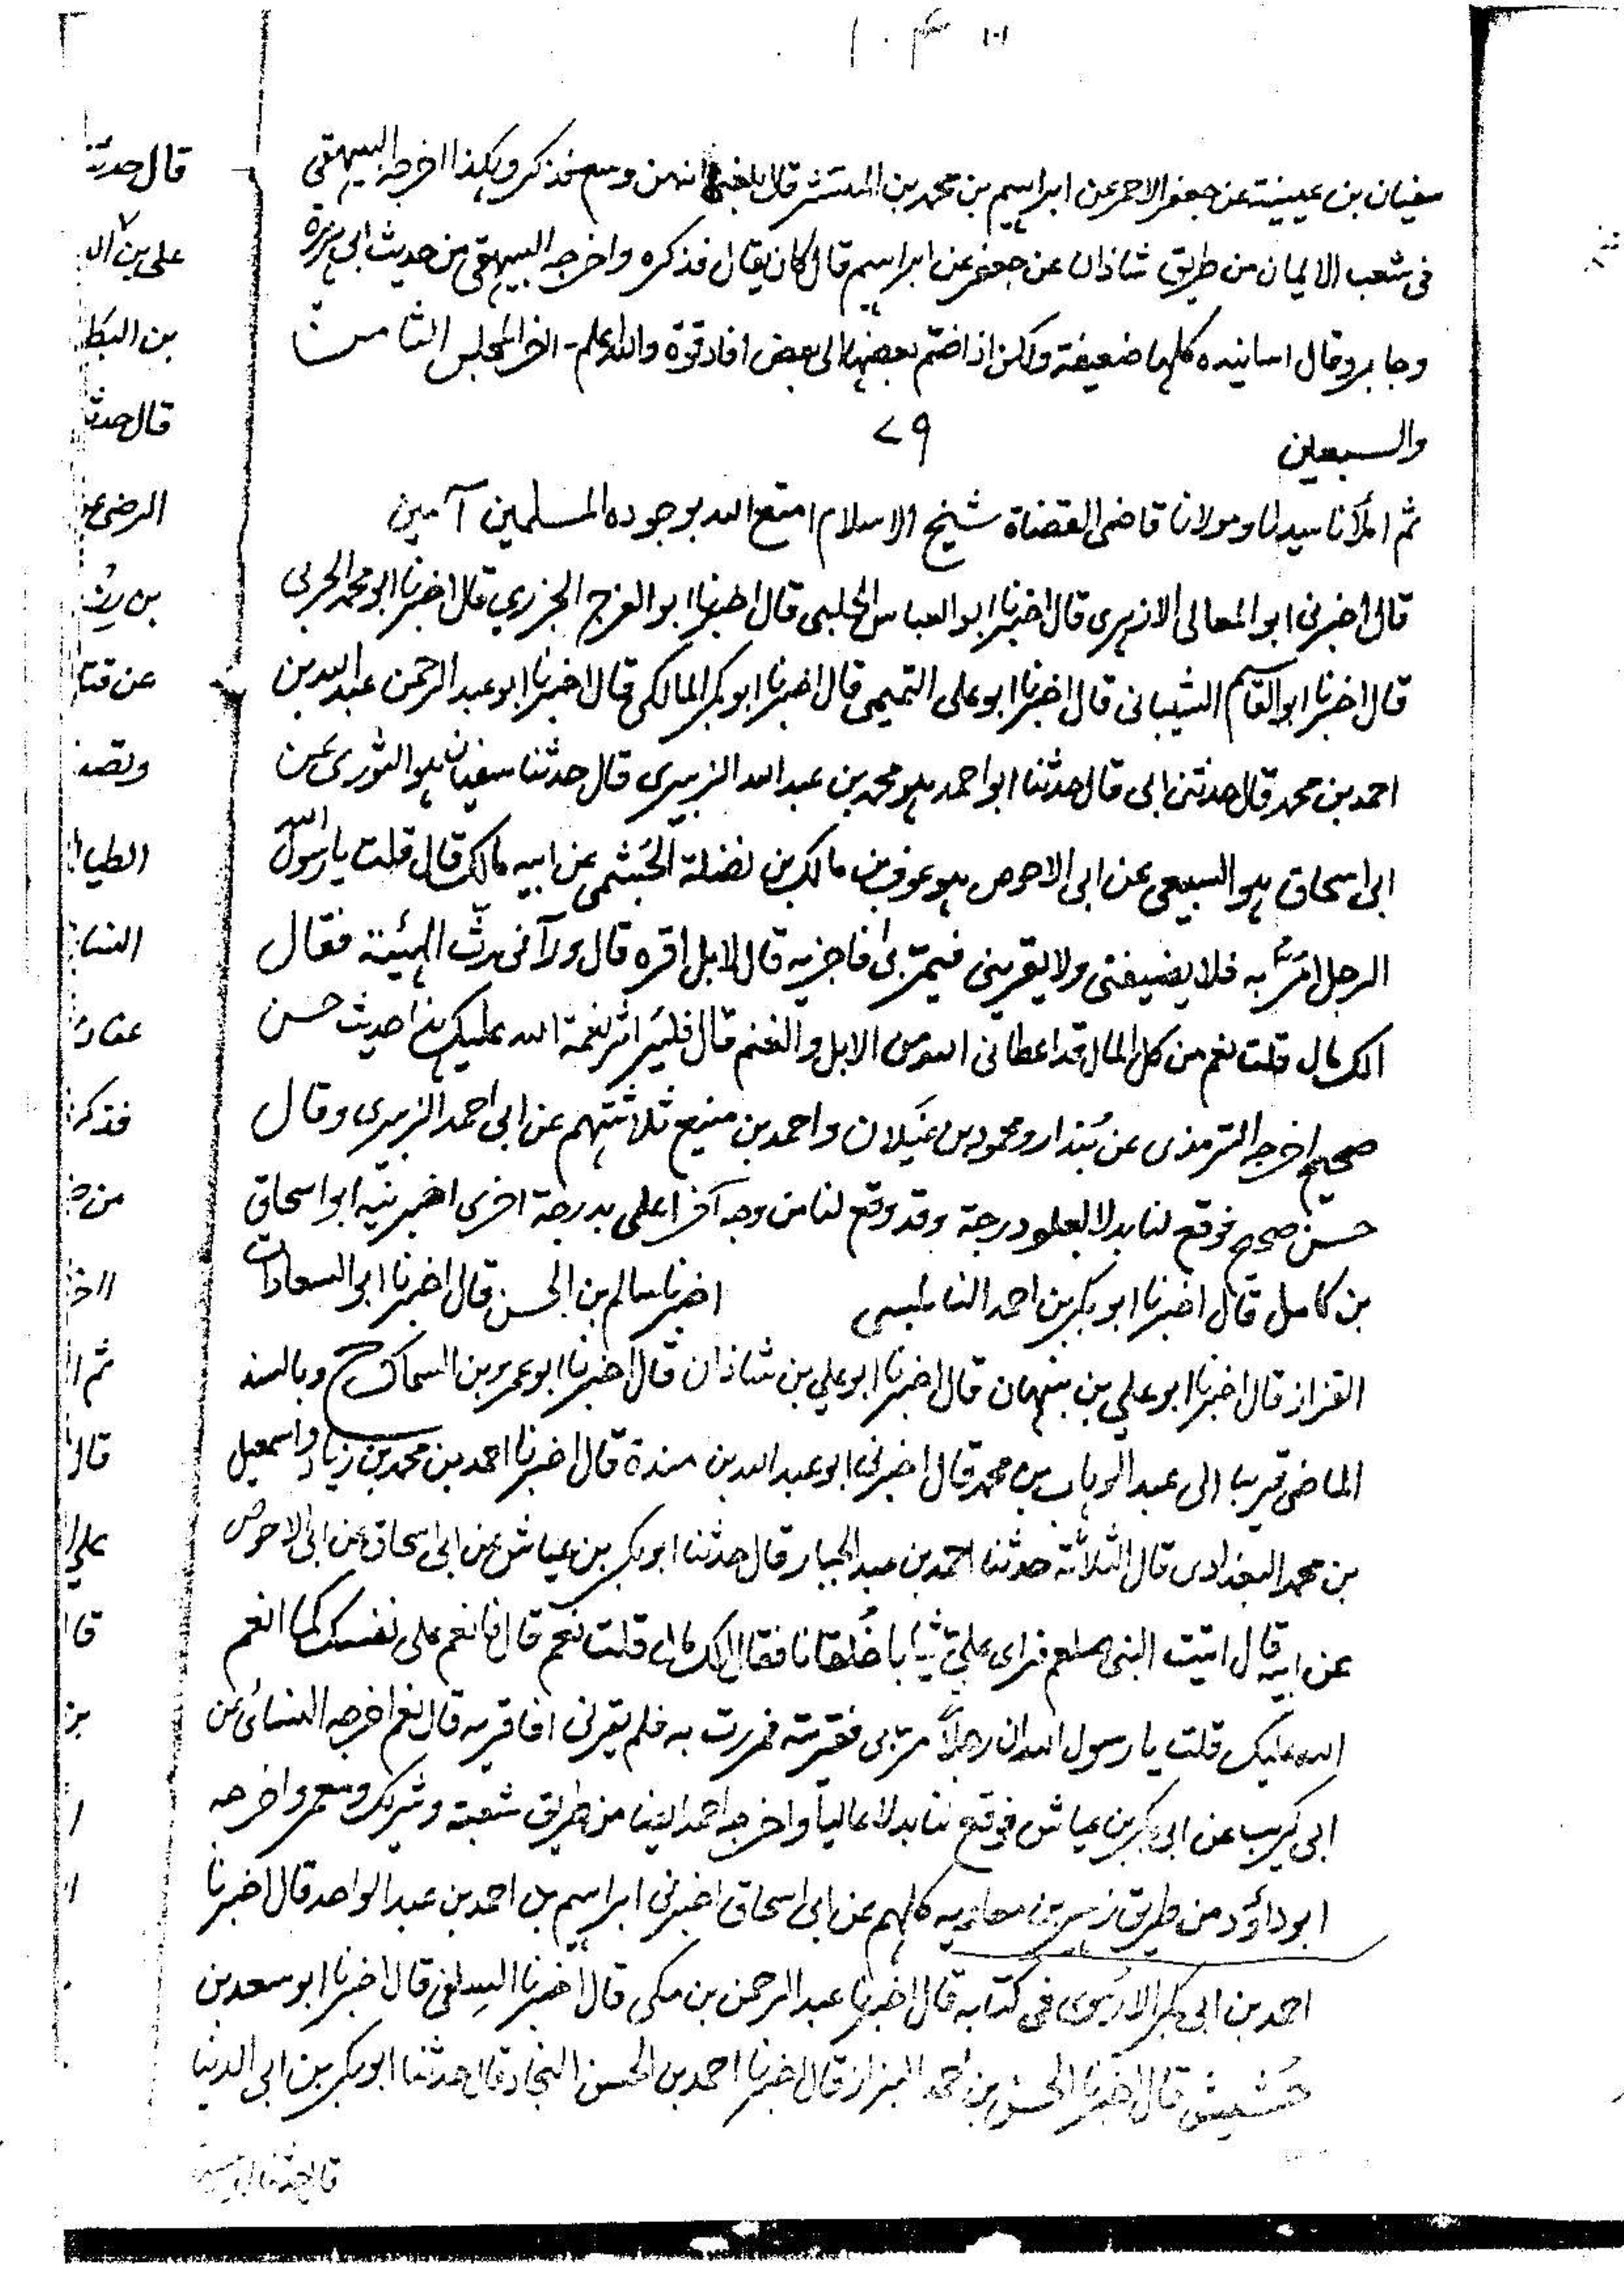 ١٠٤
سفيان بن عيينة عن جعفر الاحمر عن ابراهيم بن محمد بن المنتشر قال بلغني انه من وسع فذكر وهكذا اخرجه البيهقي
في شعب الايمان من طريق شاذان عن جعفر عن ابراهيم قال كان يقال فذكره واخرجه البيهقي من حديث ابي هريرة
وجابر وقال اسانيده كلها ضعيفة ولكن اذا ضم بعضها الى بعض افاد قوة والله اعلم - اخر المجلس الثامن
والسبعين
٧٩
ثم املأنا سيدنا ومولانا قاضى القضاة شيخ الاسلام امتع الله بوجوده المسلمين آمين
قال اخبرنى ابو المعالى الازهرى قال اخبرنا ابو العباس الحلبى قال اخبرنا ابو الفرج الجزري قال اخبرنا ابو محمد الحربى
قال اخبرنا ابو القاسم الشيبانى قال اخبرنا ابو على التميمى قال اخبرنا ابو بكر المالكى قال اخبرنا ابو عبد الرحمن عبد الله بن
احمد بن محمد قال حدثنى ابى قال حدثنا ابو احمد هو محمد بن عبد الله الزبيرى قال حدثنا سفيان هو الثورى عن
ابى اسحاق هو السبيعى عن ابى الاحوص هو عوف بن مالك بن نضلة الجُشمى عن ابيه مالك قال قلت يا رسول الله
الرجل امرّ به فلا يضيفنى ولا يقرينى فيمرّ بى افاجزيه قال لا بل اقره قال ورآنى رثّ الهيئة فقال
الك مال قلت نعم من كل المال قد اعطانى الله من الابل والغنم قال فليُر اثر نعمة الله عليك هذا حديث حسن
صحيح اخرجه الترمذى عن بُندار ومحمود بن غَيلان واحمد بن منيع ثلاثتهم عن ابى احمد الزبيرى وقال
حسن صحيح فوقع لنا بدلا بعلو درجة وقد وقع لنا من وجه آخر اعلى بدرجة اخرى اخبرنيه ابو اسحاق
بن كامل قال اخبرنا ابو بكر بن احمد النابلسى اخبرنا سالم بن الحسن قال اخبرنا ابو السعادات
القزاز قال اخبرنا ابو علي بن نبهان قال اخبرنا ابو علي بن شاذان قال اخبرنا ابو عمرو بن السماك ح وبالسند
الماضى قريبا الى عبد الوهاب بن محمد قال اخبرنى ابو عبد الله بن مندة قال اخبرنا احمد بن محمد بن زياد واسمعيل
بن محمد البغدادى قال الثلاثة حدثنا احمد بن عبد الجبار قال حدثنا ابو بكر بن عياش عن ابى اسحاق عن ابى الاحوص
عن ابيه قال اتيت النبى صلعم فراى عليّ ثيابا خُلقانا فقال الك مال قلت نعم قال فانعم على نفسك كما انعم
الله عليك قلت يا رسول الله ان رجلاً مرّ بى فقريته فمررت به فلم يقرنى افاقريه قال نعم اخرجه النسائى عن
ابى كريب عن ابى بكر بن عياش فوقع لنا بدلا عالياً واخرجه احمد ايضا من طريق شعبة وشريك ومعمر واخرجه
ابو داؤد من طريق زهير بن معاويه كلهم عن ابى اسحاق اخبرنى ابراهيم بن احمد بن عبد الواحد قال اخبرنا
احمد بن ابى بكر الارموى فى كتابه قال اخبرنا عبد الرحمن بن مكى قال اخبرنا السِلفى قال اخبرنا ابو سعد بن
خُشيش قال اخبرنا الحسن بن احمد البزاز قال اخبرنا احمد بن الحسن النجاد قال حدثنا ابو بكر بن ابى الدنيا
قال حدثنا
قال حدثنا
على بن
بن
قال حدثنا
الرضى
بن
عن
الطيا
فذكر
ثم
قال